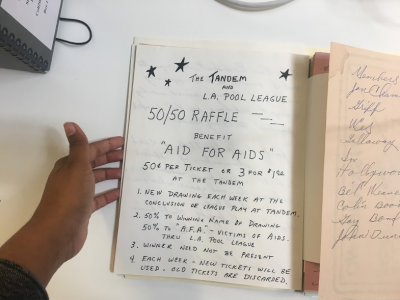 THE TANDEM
AND
L.A. POOL LEAGUE
50/50 RAFFLE
BENEFIT
"AID FOR AIDS"
50¢ PER TICKET OR 3 FOR $1.00
AT THE TANDEM
1. NEW DRAWING EACH WEEK AT THE
CONCLUSION OF LEAGUE PLAY AT TANDEM.
2. 50% TO WINNING NAME OF DRAWING
50% TO "A.F.A." - VICTIMS OF AIDS.
THRU L.A. POOL LEAGUE
3. WINNER NEED NOT BE PRESENT
4. EACH WEEK - NEW TICKETS WILL BE
USED - OLD TICKETS ARE DISCARDED.
Members
Griff
Galloway
Hollywood